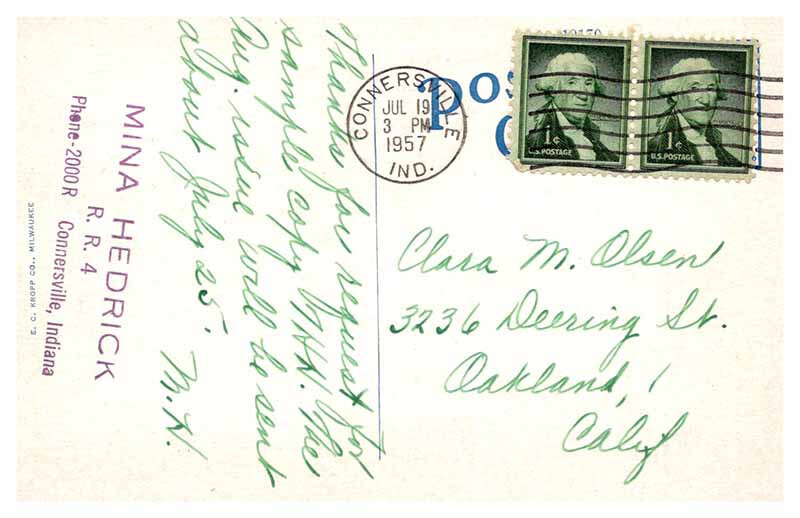 Thanks for request for
sample copy HH. The
Aug. issue will be sent
about July 25.
M.H.
MINA HEDRICK
R. R. 4
Phone-2000R Connersville, Indiana
E. C. KROPP CO., MILWAUKEE
CONNERSVILLE
JUL 19
3 PM
1957
IND.
1¢
U.S. POSTAGE
1¢
U.S. POSTAGE
Clara M. Olsen
3236 Deering St.
Oakland, 1
Calif